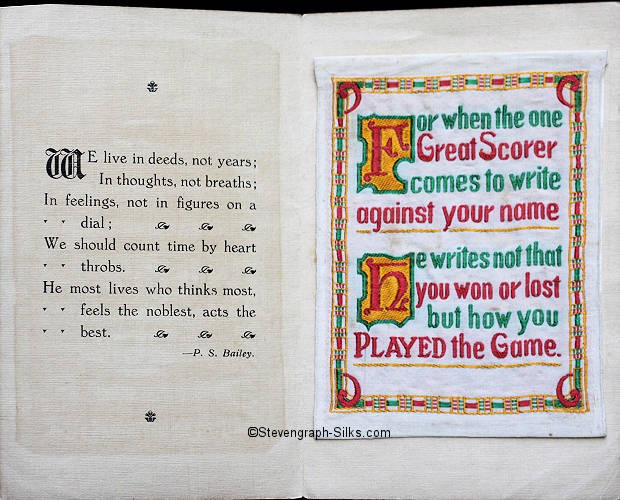 WE live in deeds, not years;
In thoughts, not breaths;
In feelings, not in figures on a
dial;
We should count time by heart
throbs.
He most lives who thinks most,
feels the noblest, acts the
best.
—P. S. Bailey.
For when the one
Great Scorer
comes to write
against your name
he writes not that
you won or lost
but how you
PLAYED the Game.
©Stevengraph-Silks.com